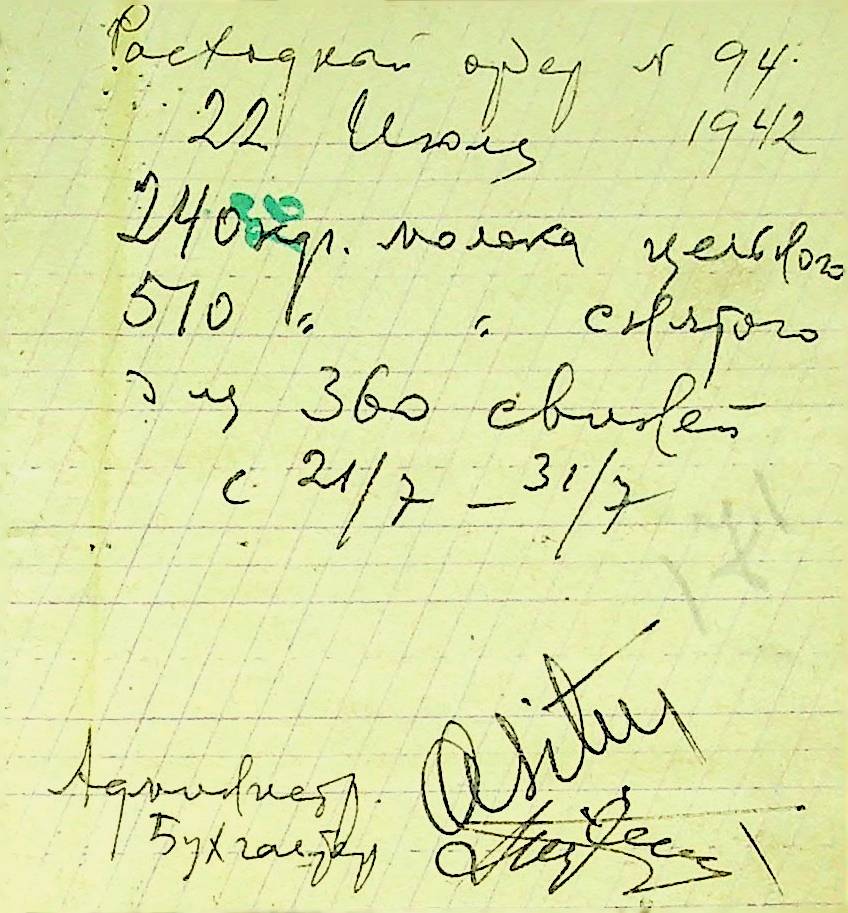 Расходный ордер № 94.
22 Июля 1942
240 кгр. молока цельного
510 " " снятого
для 360 свиней
с 21/7 – 31/7
171
Администр.
Бухгалтер